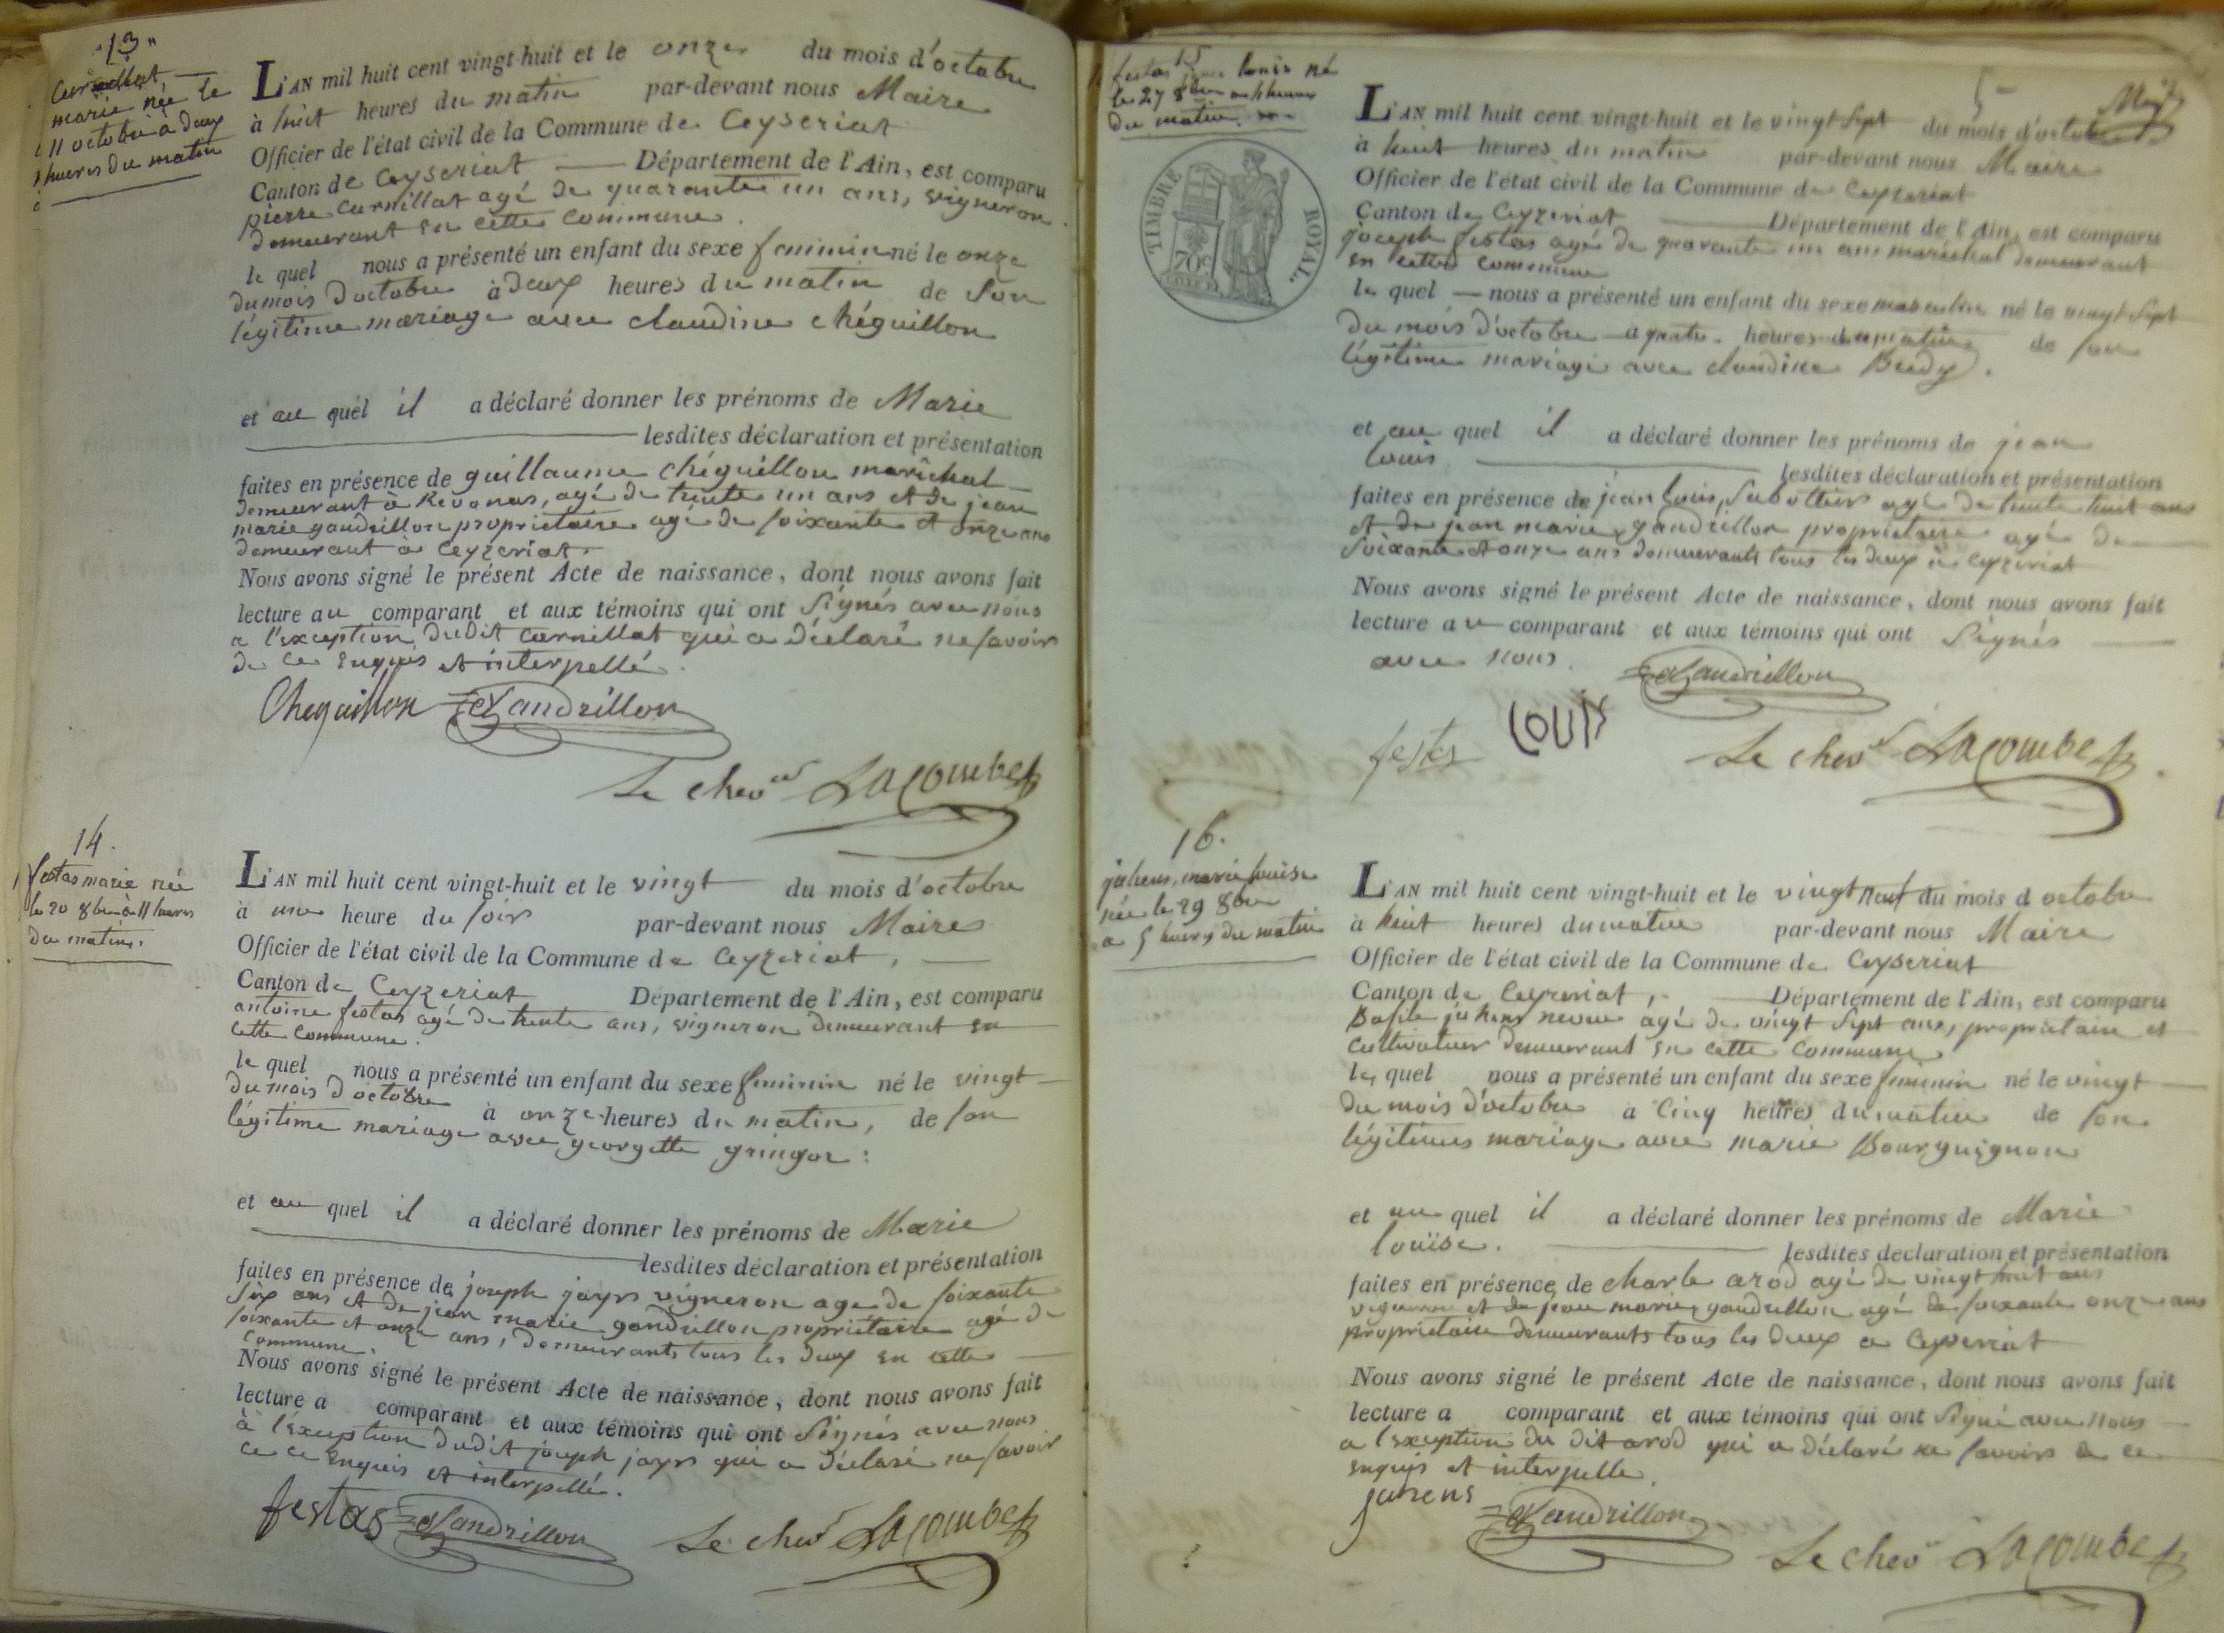 "13"
Curnillat
marie née le
11 octobre à deux
heures du matin
L'AN mil huit cent vingt-huit et le onze du mois d'octobre
à huit heures du matin par-devant nous Maire
Officier de l'état civil de la Commune de Ceyseriat
Canton de Ceyseriat Département de l'Ain, est comparu
pierre Curnillat agé de quarante un ans, vigneron
demeurant en cette commune.
le quel nous a présenté un enfant du sexe feminin né le onze
du mois d'octobre à deux heures du matin de son
légitime mariage avec claudine chéguillon
et au quel il a déclaré donner les prénoms de Marie
lesdites déclaration et présentation
faites en présence de guillaume chéguillon maréchal
demeurant à Revonas, agé de trente un ans et de jean
marie gandrillon proprietaire agé de soixante et onze ans
demeurant à Ceyzeriat.
Nous avons signé le présent Acte de naissance, dont nous avons fait
lecture au comparant et aux témoins qui ont Signés avec nous
a l'exception dudit curnillat qui a déclaré ne savoir
de ce enquis et interpellé.
Cheguillon Gandrillon
Le chevr Lacombe
14.
festas marie née
le 20 8bre à 11 heures
du matin.
L'AN mil huit cent vingt-huit et le vingt du mois d'octobre
à une heure du soir par-devant nous Maire
Officier de l'état civil de la Commune de Ceyzeriat,
Canton de Ceyzeriat Département de l'Ain, est comparu
antoine festas agé de trente ans, vigneron demeurant en
cette commune.
le quel nous a présenté un enfant du sexe feminin né le vingt
du mois d'octobre à onze heures du matin, de son
légitime mariage avec georgette gringoz:
et au quel il a déclaré donner les prénoms de Marie
lesdites déclaration et présentation
faites en présence de joseph jayrs vigneron age de soixante
six ans et de jean marie gandrillon proprietaire agé de
soixante et onze ans, demeurants tous les deux en cette
commune.
Nous avons signé le présent Acte de naissance, dont nous avons fait
lecture a comparant et aux témoins qui ont Signés avec nous
à l'éxception dudit joseph jayrs qui a déclaré ne savoir
ce ce enquis et interpellé.
festas Gandrillon Le chevr Lacombe
15
festas jean louis né
le 27 8bre à 4 heures
du matin.
TIMBRE ROYAL.
70c
L'AN mil huit cent vingt-huit et le vingt sept du mois d'octobre
à huit heures du matin par-devant nous Maire
Officier de l'état civil de la Commune de Ceyzeriat
Canton de Ceyzeriat Département de l'Ain, est comparu
joseph festas agé de quarante un ans maréchal demeurant
en cette commune
le quel nous a présenté un enfant du sexe masculin né le vingt sept
du mois d'octobre a quatre heures du matin de son
légitime mariage avec claudine Buidy.
et au quel il a déclaré donner les prénoms de jean
louis lesdites déclaration et présentation
faites en présence de jean louis, sabottier agé de trente huit ans
et de jean marie gandrillon proprietaire agé de
soixante et onze ans demeurants tous les deux à Ceyzeriat
Nous avons signé le présent Acte de naissance, dont nous avons fait
lecture au comparant et aux témoins qui ont Signés
avec nous. Gandrillon
festes LOUIS Le chevr Lacombe
16.
juhens, marie louise
née le 29 8bre
a 5 heures du matin
L'AN mil huit cent vingt-huit et le vingt neuf du mois d octobre
à huit heures du matin par-devant nous Maire
Officier de l'état civil de la Commune de Ceyseriat
Canton de Ceyzeriat, Département de l'Ain, est comparu
agé de vingt sept ans, proprietaire et
cultivateur demeurant en cette commune
le quel nous a présenté un enfant du sexe feminin né le vingt
du mois d'octobre à Cinq heures du matin de son
légitime mariage avec marie Bourguignon
et au quel il a déclaré donner les prénoms de Marie
louïse. lesdites déclaration et présentation
faites en présence de charle arod agé de vingt huit ans
vigneron et de jean marie gandrillon agé de soixante onze ans
proprietaire demeurants tous les deux a Ceyseriat
Nous avons signé le présent Acte de naissance, dont nous avons fait
lecture a comparant et aux témoins qui ont Signé avec nous
a l'exception du dit arod qui a déclaré ne savoir de ce
enquis et interpellé.
juhens Gandrillon
Le chevr Lacombe